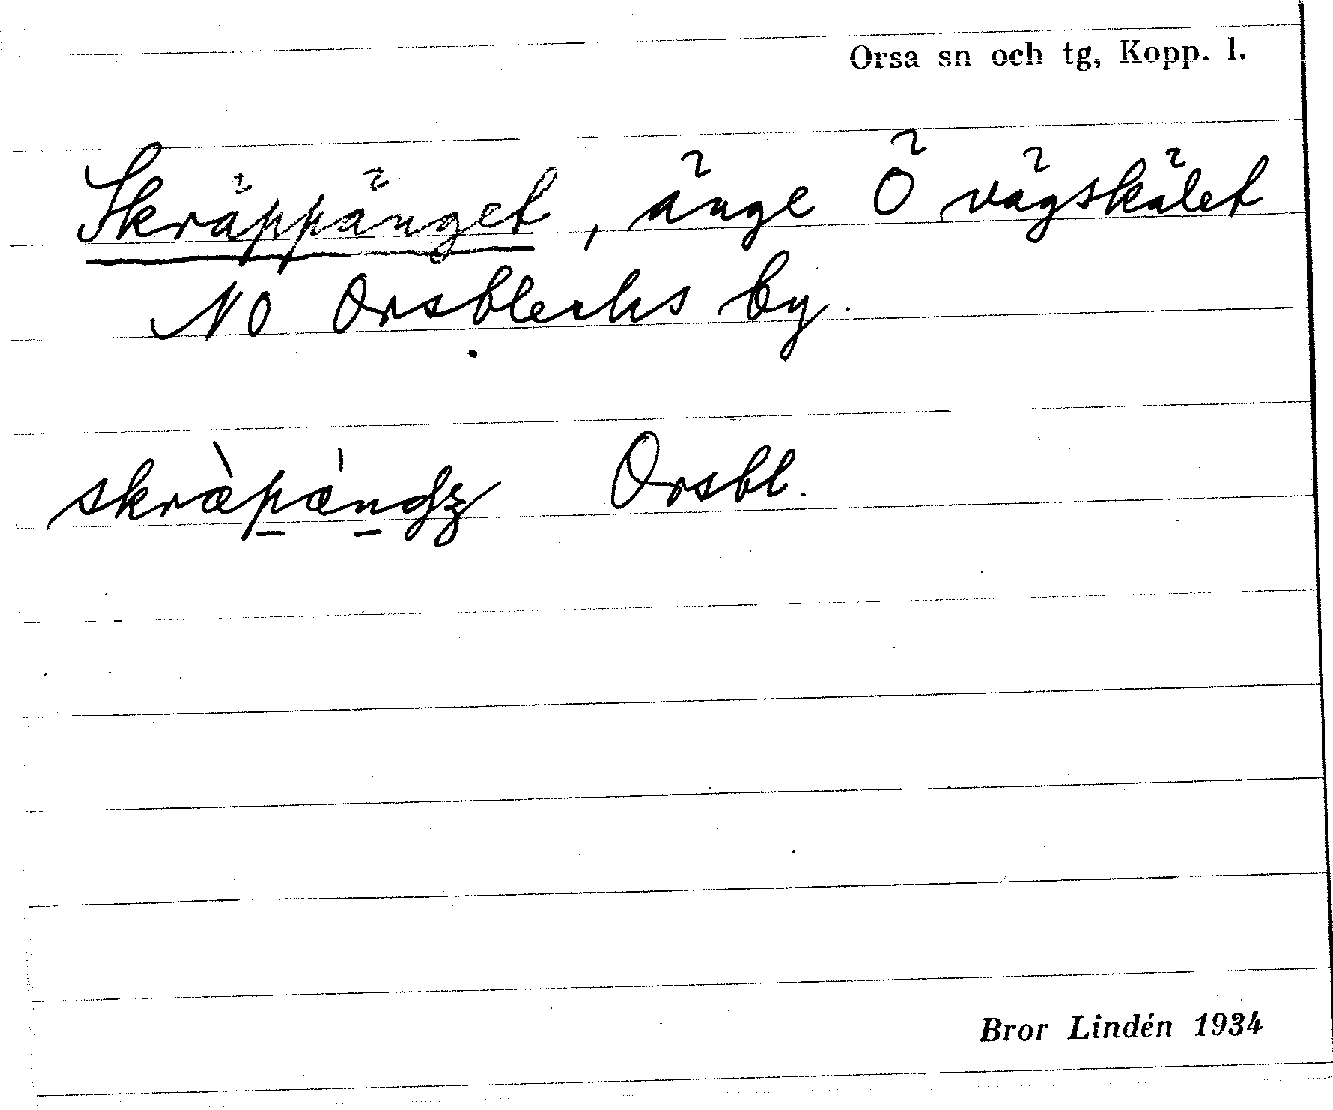 Orsa sn och tg, Kopp. l.
Skräppänget, änge Ö vägskälet
NO Orsblecks by.
skræ̀pǽndʒ Orsbl.
Bror Lindén 1934